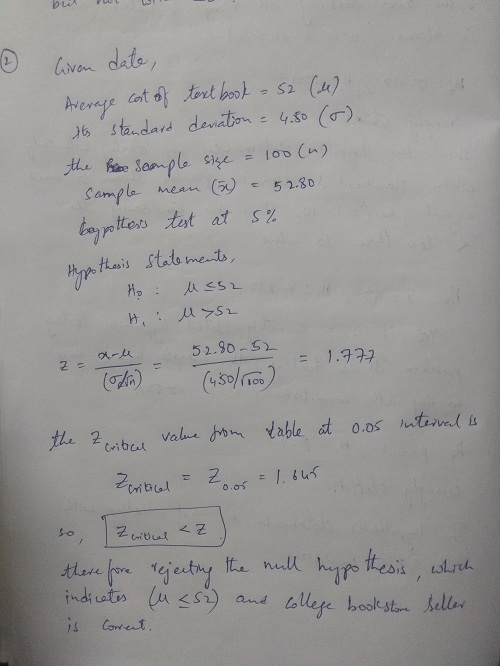 but not
②
Given data,
Average cost of textbook = 52 (μ)
Its standard deviation = 4.50 (σ).
the sample size = 100 (n)
Sample mean (x̄) = 52.80
hypothesis test at 5%
Hypothesis Statements,
H₀ : μ ≤ 52
H₁ : μ > 52
z = x-μ/(σ/√n) = 52.80-52/(4.50/√100) = 1.777
the Z critical value from table at 0.05 interval is
Z critical = Z 0.05 = 1.645
so, Z critical < Z
therefore rejecting the null hypothesis, which
indicates (μ ≤ 52) and college bookstore seller
is correct.